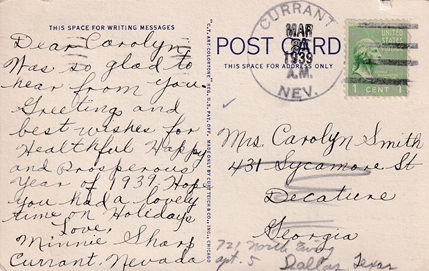 THIS SPACE FOR WRITING MESSAGES
Dear Carolyn
Was so glad to
hear from you
Greeting and
best wishes for
Healthful Happy
and Prosperous
Year of 1939 Hope
you had a lovely
time on Holidays
Love,
Minnie Sharp
Currant, Nevada
"C.T. ART-COLORTONE" REG. U.S. PAT. OFF. MADE ONLY BY CURT TEICH & CO., INC., CHICAGO
POST CARD
THIS SPACE FOR ADDRESS ONLY
CURRANT
MAR
1939
A.M.
NEV.
UNITED STATES
1 CENT 1
Mrs. Carolyn Smith
431 Sycamore St
Decature
Georgia
721 North
apt. 5 Dallas, Texas